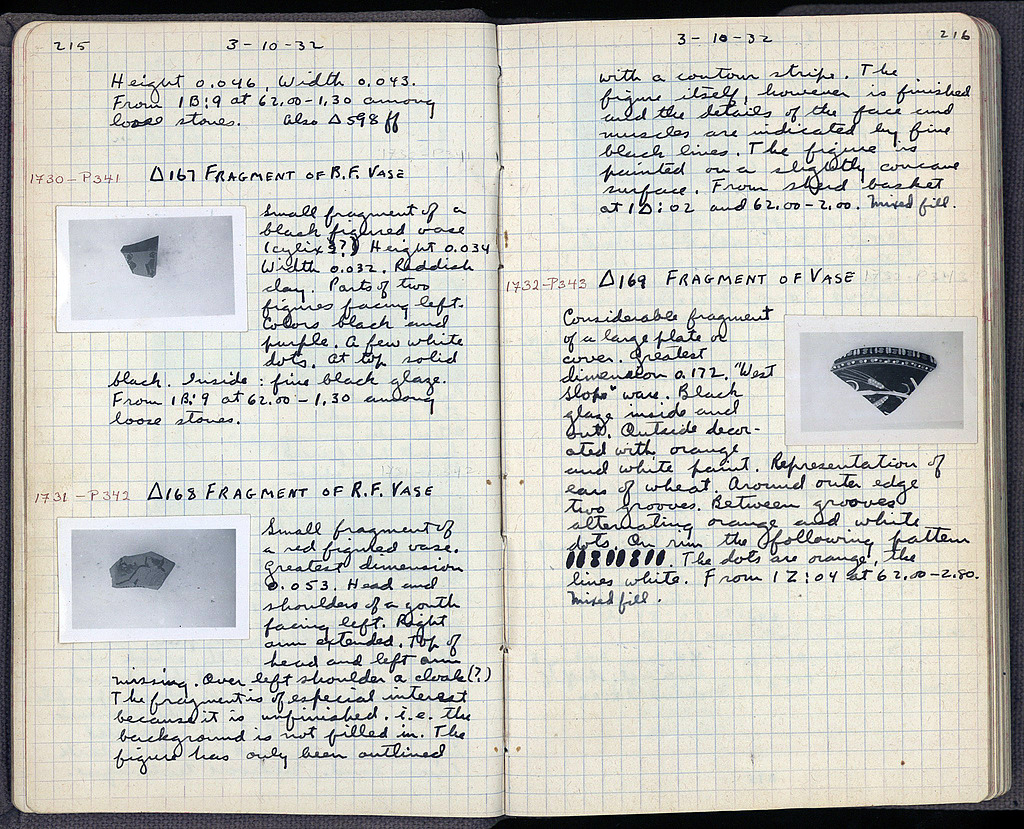 215
3-10-32
Height 0.046, Width 0.043.
From 1B:9 at 62.00-1.30 among
loose stones. Also Δ598 ff
1730-P341 Δ167 FRAGMENT OF B.F. VASE
Small fragment of a
black figured vase
(cylix?) Height 0.034
Width 0.032. Reddish
clay. Parts of two
figures facing left.
Colors black and
purple. A few white
dots. At top solid
black. Inside: fine black glaze.
From 1B:9 at 62.00-1.30 among
loose stones.
1731-P342 Δ168 FRAGMENT OF R.F. VASE
Small fragment of
a red figured vase.
Greatest dimension
0.053. Head and
shoulders of a youth
facing left. Right
arm extended. Top of
head and left arm
missing. Over left shoulder a cloak(?)
The fragment is of especial interest
because it is unfinished. i.e. the
background is not filled in. The
figure has only been outlined
3-10-32
216
with a contour stripe. The
figure itself, however is finished
and the details of the face and
muscles are indicated by fine
black lines. The figure is
painted on a slightly concave
surface. From sherd basket
at 1Δ:02 and 62.00-2.00. Mixed fill.
1732-P343 Δ169 FRAGMENT OF VASE
Considerable fragment
of a large plate or
cover. Greatest
dimension 0.172. "West
Slope" ware. Black
glaze inside and
out. Outside decor-
ated with orange
and white paint. Representation of
ears of wheat. Around outer edge
two grooves. Between grooves
alternating orange and white
dots. On rim the following pattern
The dots are orange, the
lines white. From 1Z:04 at 62.00-2.80.
Mixed fill.